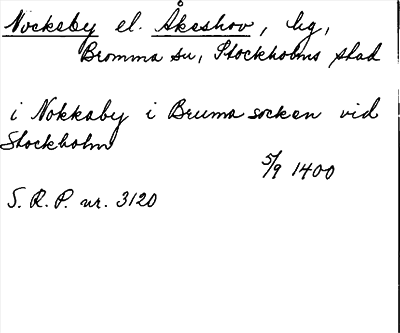 Nockeby el. Åkeshov, hg,
Bromma sn, Stockholms stad
i Nokkaby i Bruma socken vid
Stockholm
5/9 1400
S.R.P. nr. 3120